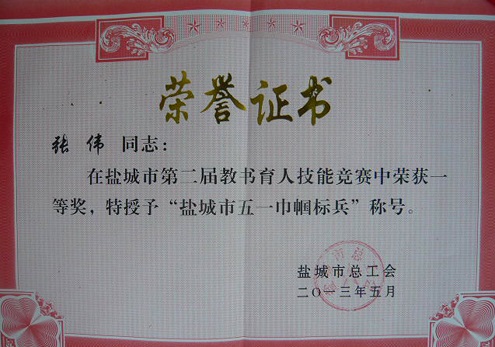 荣誉证书
张伟 同志：
在盐城市第二届教书育人技能竞赛中荣获一
等奖，特授予“盐城市五一巾帼标兵”称号。
盐城市总工会
二〇一三年五月